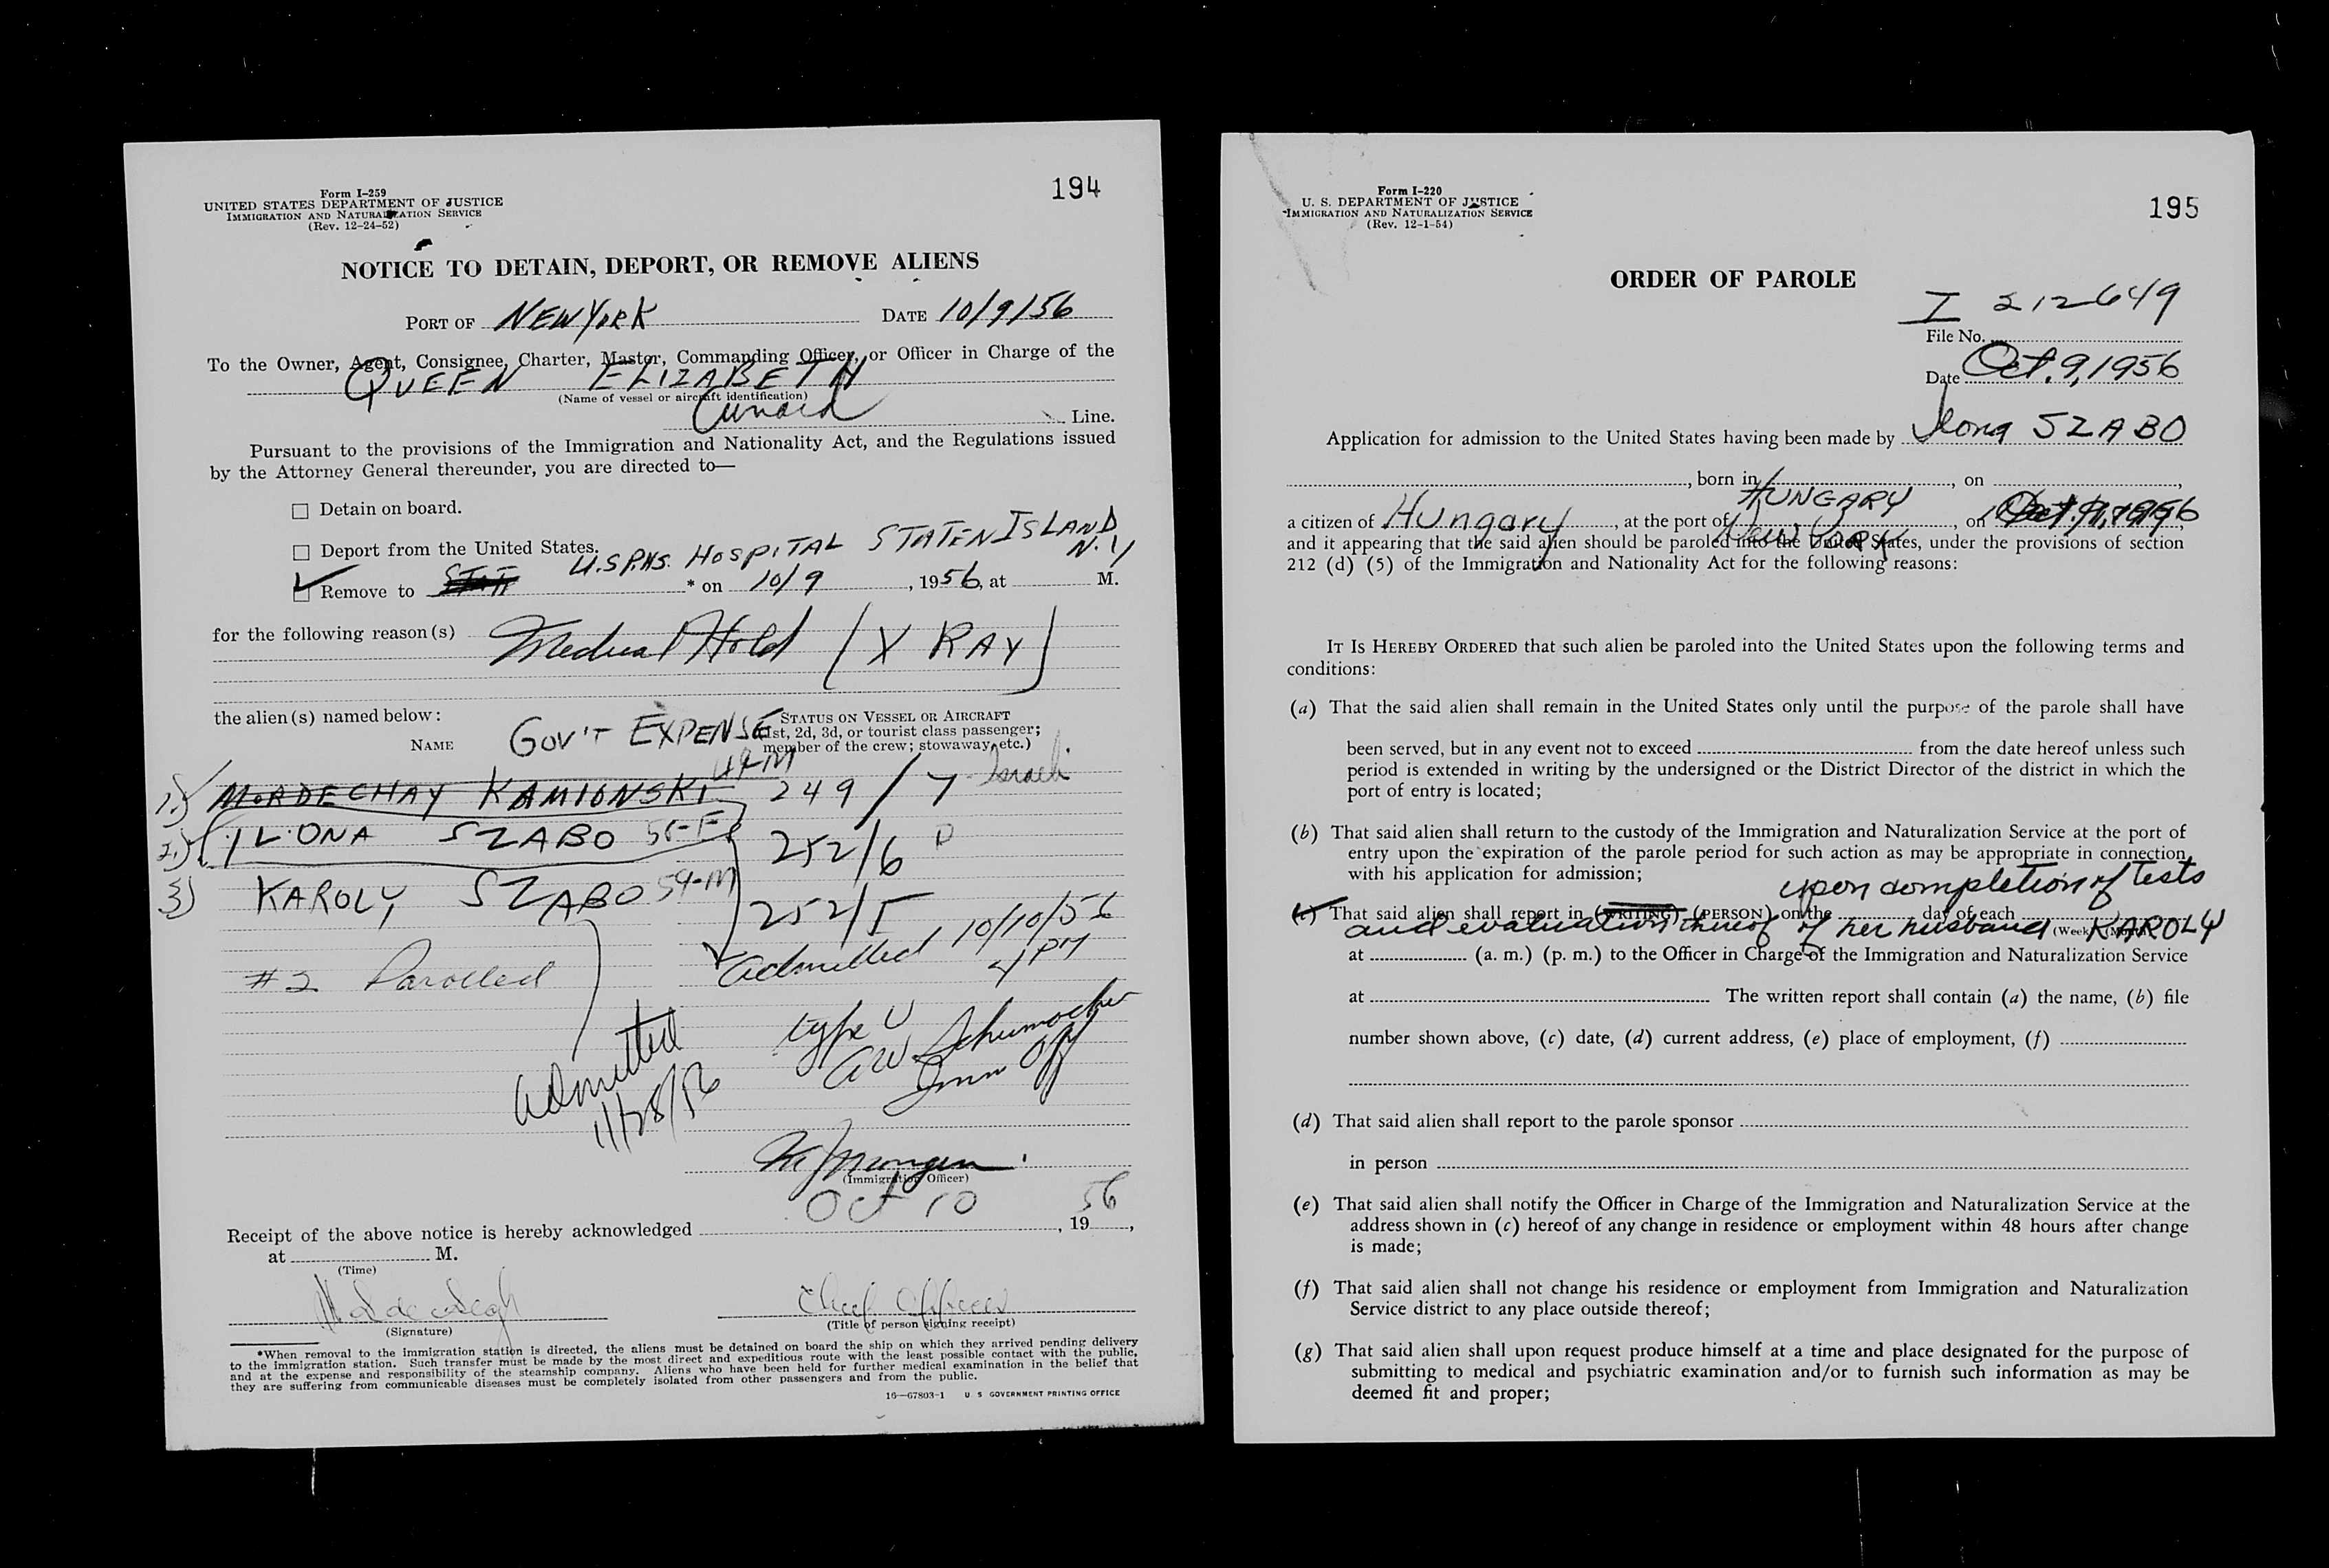 Form I-259
UNITED STATES DEPARTMENT OF JUSTICE
IMMIGRATION AND NATURALIZATION SERVICE
(Rev. 12-24-52)
194
NOTICE TO DETAIN, DEPORT, OR REMOVE ALIENS
PORT OF NEW YORK DATE 10/9/56
To the Owner, Agent, Consignee, Charter, Master, Commanding Officer, or Officer in Charge of the
QUEEN ELIZABETH
(Name of vessel or aircraft identification)
Cunard Line.
Pursuant to the provisions of the Immigration and Nationality Act, and the Regulations issued
by the Attorney General thereunder, you are directed to—
☐ Detain on board.
☐ Deport from the United States.
U.S.P.H.S. HOSPITAL STATEN ISLAND
N.Y
Remove to * on 10/9, 1956, at M.
for the following reason(s) Medical Hold (X RAY)
the alien(s) named below:
GOV'T EXPENSE
STATUS ON VESSEL OR AIRCRAFT
NAME
(1st, 2d, 3d, or tourist class passenger;
member of the crew; stowaway, etc.)
1.) MORDECHAY KAMIONSKI 249/7 Israeli
2.) ILONA SZABO 252/6
3) KAROLY SZABO 59-M 252/5
#2 Parolled
admitted 10/10/56
4 PM
type U
AW Schumacher
Imm Off
Admitted
11/28/56
(Immigration Officer)
Oct 10 56
Receipt of the above notice is hereby acknowledged , 19 ,
at M.
(Time)
Chief Officer
(Signature)
(Title of person signing receipt)
*When removal to the immigration station is directed, the aliens must be detained on board the ship on which they arrived pending delivery
to the immigration station. Such transfer must be made by the most direct and expeditious route with the least possible contact with the public,
and at the expense and responsibility of the steamship company. Aliens who have been held for further medical examination in the belief that
they are suffering from communicable diseases must be completely isolated from other passengers and from the public.
16—67803-1 U. S. GOVERNMENT PRINTING OFFICE
Form I-220
U. S. DEPARTMENT OF JUSTICE
IMMIGRATION AND NATURALIZATION SERVICE
(Rev. 12-1-54)
195
ORDER OF PAROLE
I 212649
File No.
Date Oct. 9, 1956
Application for admission to the United States having been made by Ilona SZABO
, born in HUNGARY, on ,
a citizen of Hungary, at the port of New York, on
and it appearing that the said alien should be paroled into the United States, under the provisions of section
212 (d) (5) of the Immigration and Nationality Act for the following reasons:
IT IS HEREBY ORDERED that such alien be paroled into the United States upon the following terms and
conditions:
(a) That the said alien shall remain in the United States only until the purpose of the parole shall have
been served, but in any event not to exceed from the date hereof unless such
period is extended in writing by the undersigned or the District Director of the district in which the
port of entry is located;
(b) That said alien shall return to the custody of the Immigration and Naturalization Service at the port of
entry upon the expiration of the parole period for such action as may be appropriate in connection
with his application for admission;
upon completion of tests
(c) That said alien shall report in (WRITING) (PERSON) on the day of each
and evaluation thereof of her husband KAROLY
(Week) (Month)
at (a. m.) (p. m.) to the Officer in Charge of the Immigration and Naturalization Service
at The written report shall contain (a) the name, (b) file
number shown above, (c) date, (d) current address, (e) place of employment, (f)
(d) That said alien shall report to the parole sponsor
in person
(e) That said alien shall notify the Officer in Charge of the Immigration and Naturalization Service at the
address shown in (c) hereof of any change in residence or employment within 48 hours after change
is made;
(f) That said alien shall not change his residence or employment from Immigration and Naturalization
Service district to any place outside thereof;
(g) That said alien shall upon request produce himself at a time and place designated for the purpose of
submitting to medical and psychiatric examination and/or to furnish such information as may be
deemed fit and proper;